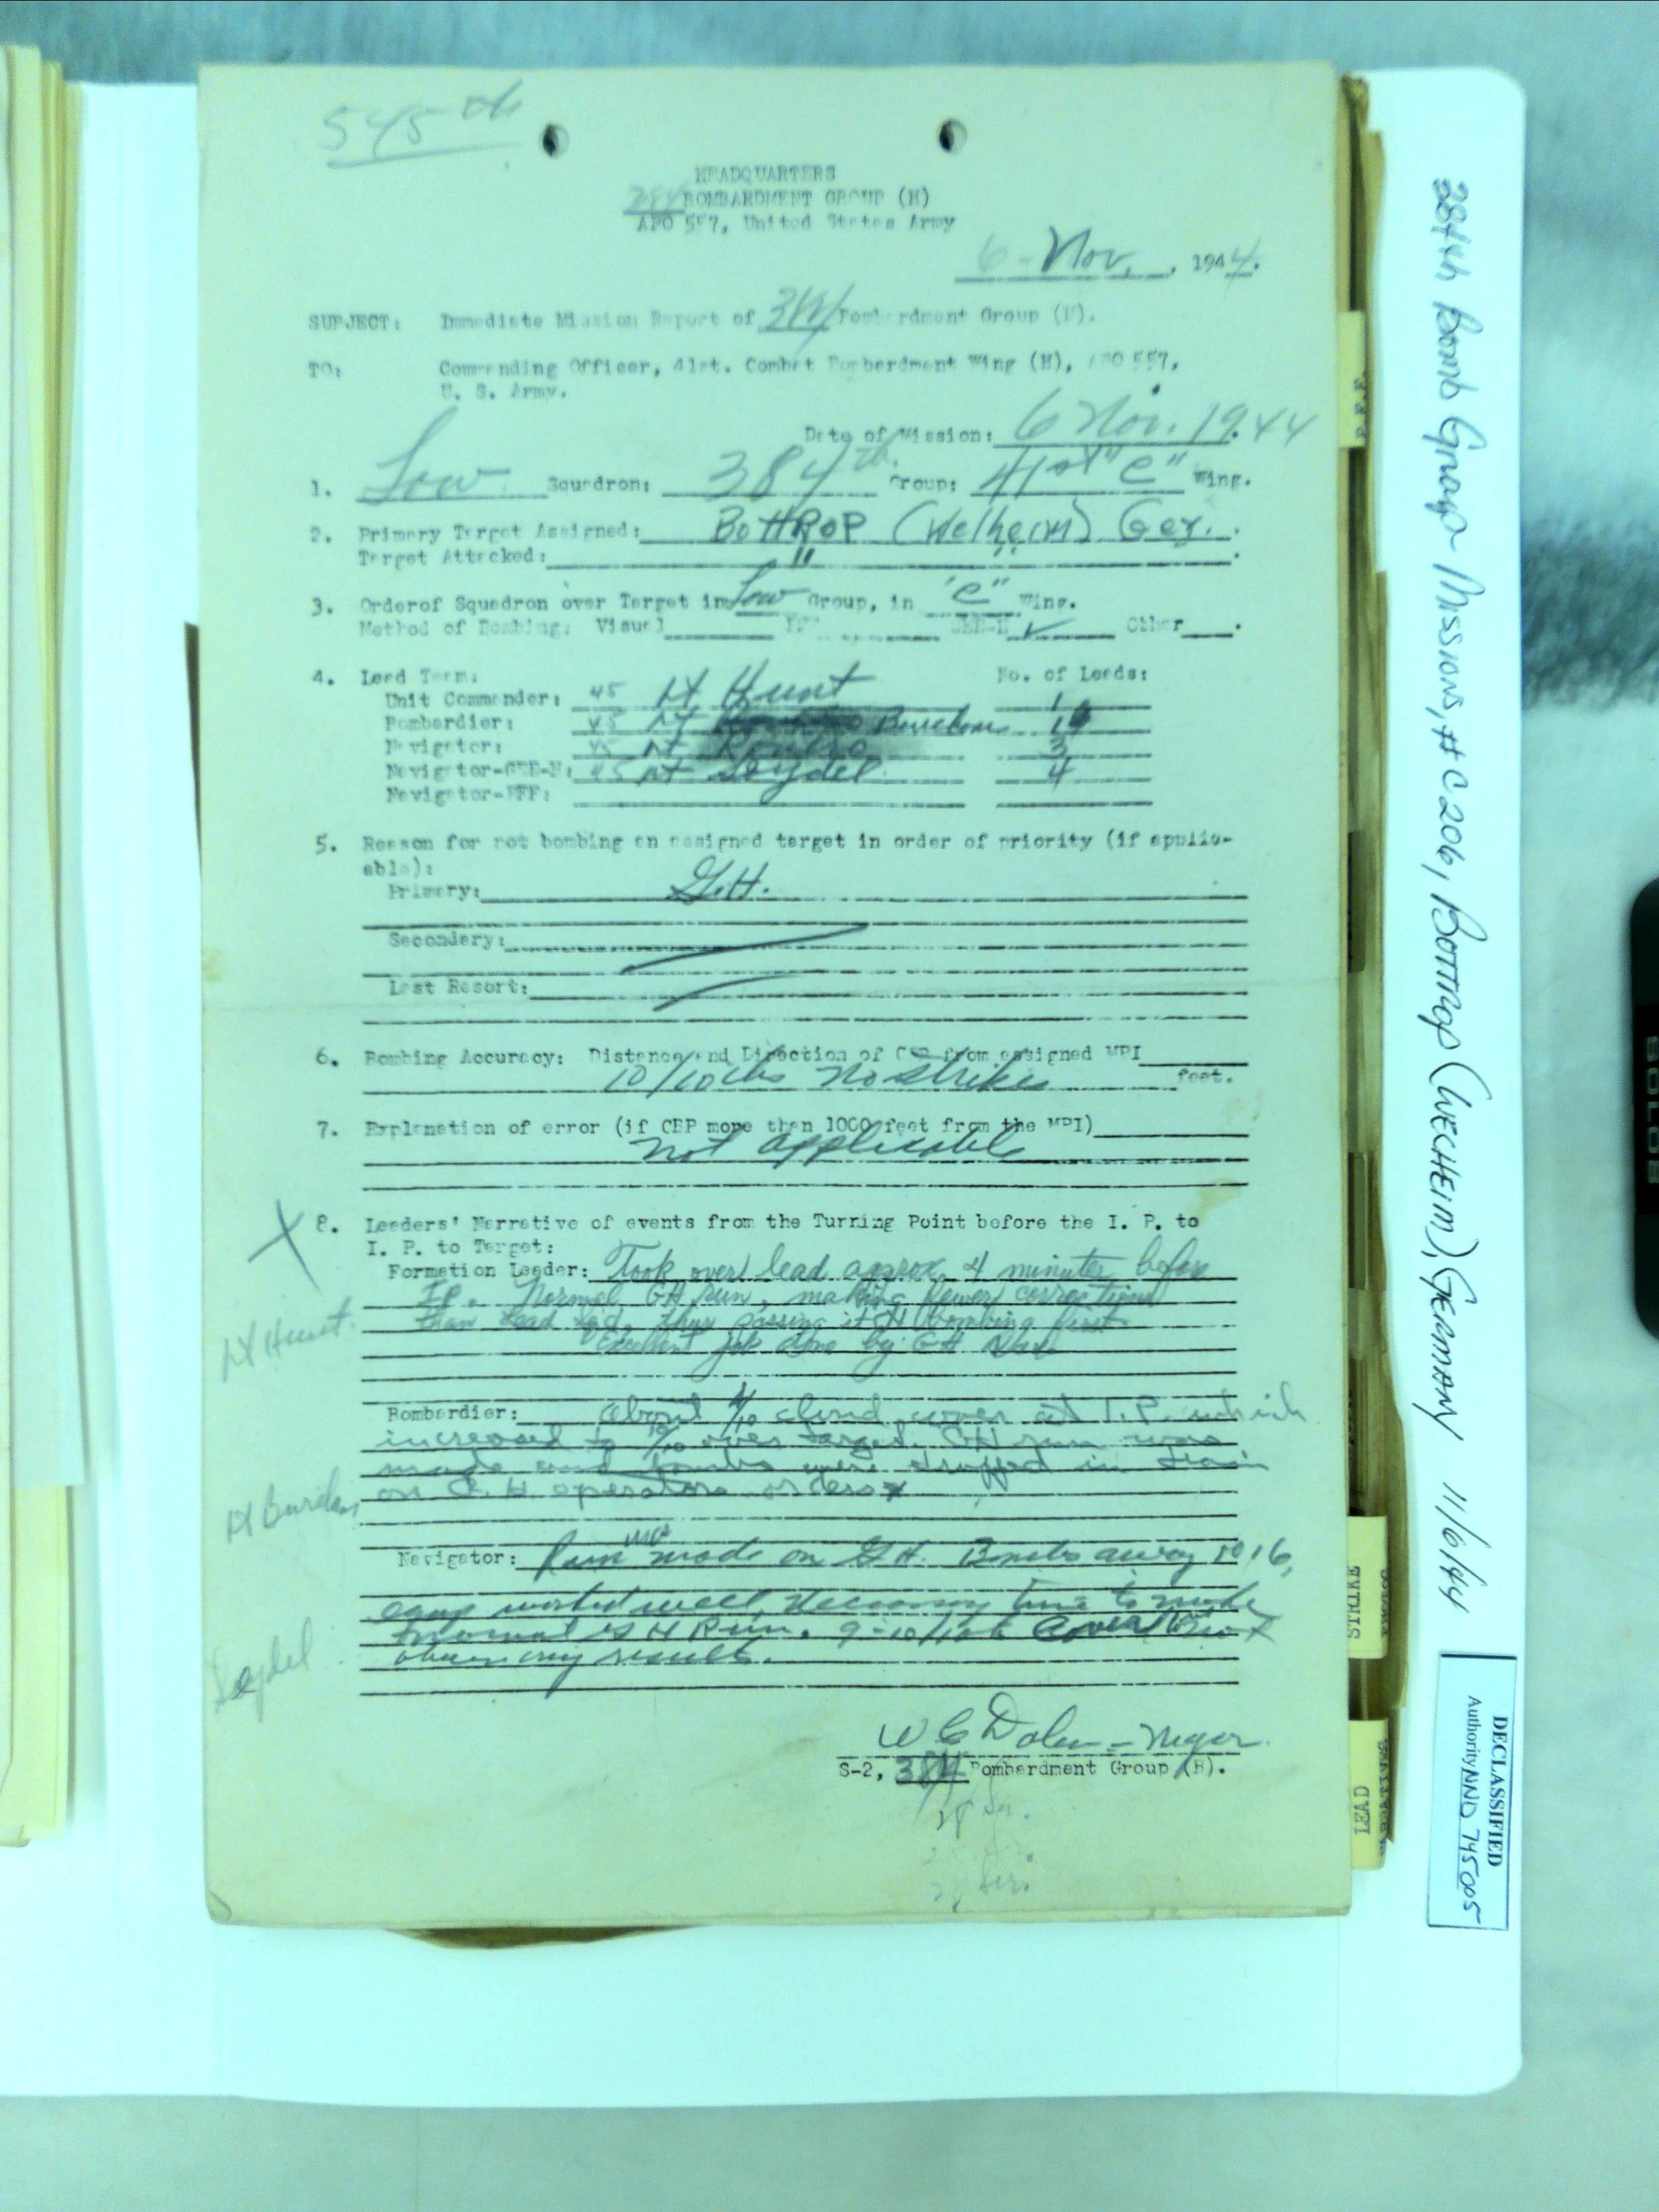 545th
HEADQUARTERS
384 BOMBARDMENT GROUP (H)
APO 557, United States Army
6 - Nov. , 1944.
SUBJECT: Immediate Mission Report of 384 Bombardment Group (H).
TO: Commanding Officer, 41st. Combat Bombardment Wing (H), APO 557,
U. S. Army.
Date of Mission: 6 Nov. 19.44
1. Low Squadron: 384th Group: 41st "C" Wing.
2. Primary Target Assigned: BOTTROP (Welheim) Ger. .
Target Attacked: " " .
3. Orderof Squadron over Target in Low Group, in "C" Wing.
Method of Bombing: Visual PFF GEE-H ✓ Other .
4. Lead Team: No. of Leads:
Unit Commander: 45 Lt Hunt 1
Bombardier: 45 Lt 1
Navigator: 45 Lt 3
Navigator-GEE-H: 45 Lt Seydel 4
Navigator-PFF:
5. Reason for not bombing an assigned target in order of priority (if applic-
able):
Primary: G.H.
Secondary:
Last Resort:
6. Bombing Accuracy: Distance and Direction of CBP from assigned MPI
10/10 clds No strikes feet.
7. Explanation of error (if CBP more than 1000 feet from the MPI)
not applicable
8. Leaders' Narrative of events from the Turning Point before the I. P. to
I. P. to Target:
Formation Leader: Took over lead approx. 4 minutes before
IP. Normal GH run, making fewer corrections
than Lead thus passing it & bombing first.
Excellent job done by GH
Lt Hunt.
Bombardier: About 4/10 cloud cover at I.P. which
increased to 10/10 over target. GH run was
made and bombs were dropped in train
on G.H. operators orders
Navigator: Run was made on G.H. Bombs away 1016,
equip worked well, necessary time to make
normal G H Run. 9-10/10 Cover
any results.
Seydel
W E Dolan - Major
S-2, 384 Bombardment Group (H).
P.F.F.
STRIKE
LEAD
NARRATIVES
384th Bomb Group Missions, # C206, BOTTROP (WELHEIM), GERMANY 11/6/44
DECLASSIFIED
Authority NND 745005